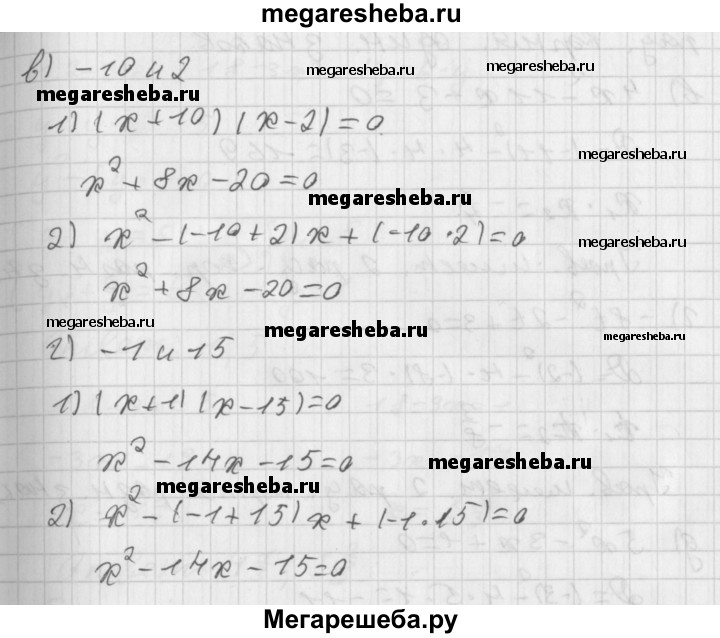 megaresheba.ru
в) -10 и 2
megaresheba.ru megaresheba.ru
megaresheba.ru
1) (x+10)(x-2)=0
megaresheba.ru
x²+8x-20=0
megaresheba.ru
2) x²-(-10+2)x+(-10·2)=0
megaresheba.ru
x²+8x-20=0
megaresheba.ru megaresheba.ru megaresheba.ru
г) -1 и 15
1) (x+1)(x-15)=0
x²-14x-15=0
megaresheba.ru
megaresheba.ru
2) x²-(-1+15)x+(-1·15)=0
x²-14x-15=0
Мегарешеба.ру